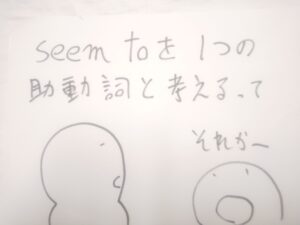 seem toを1つの
助動詞と考えるって
それかー